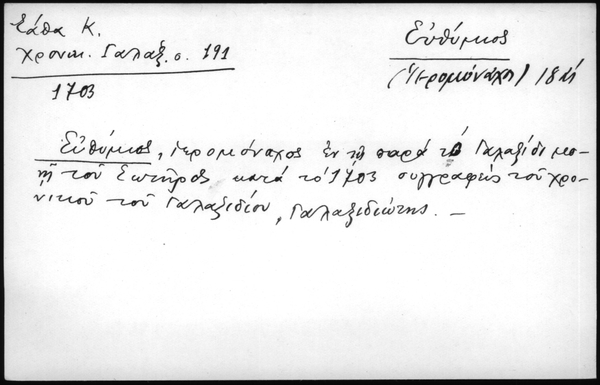 Σάθα Κ.
Χρονικ. Γαλαξ. σ. 191
1703
Εὐθύμιος
(Ἱερομόναχος)
Εὐθύμιος, ἱερομόναχος ἐν τῇ παρὰ τὸ Γαλαξίδι μο-
νῇ τοῦ Σωτῆρος κατὰ τὸ 1703 συγγραφεὺς τοῦ χρο-
νικοῦ τοῦ Γαλαξιδίου, Γαλαξιδιώτης. —